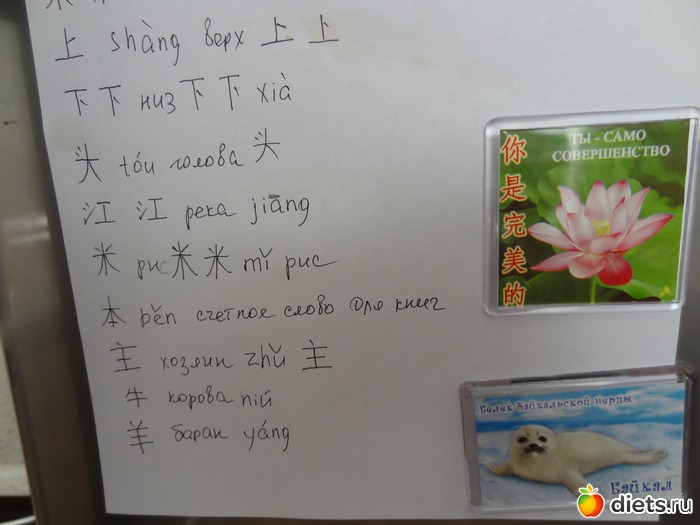 上 shàng верх 上 上
下 下 низ 下 下 xià
头 tóu голова 头
江 江 река jiāng
米 рис 米 米 mǐ рис
本 běn счетное слово для книг
主 хозяин zhǔ 主
牛 корова niú
羊 баран yáng
你是完美的
ТЫ - САМО
СОВЕРШЕНСТВО
Белек байкальской нерпы
Байкал
diets.ru